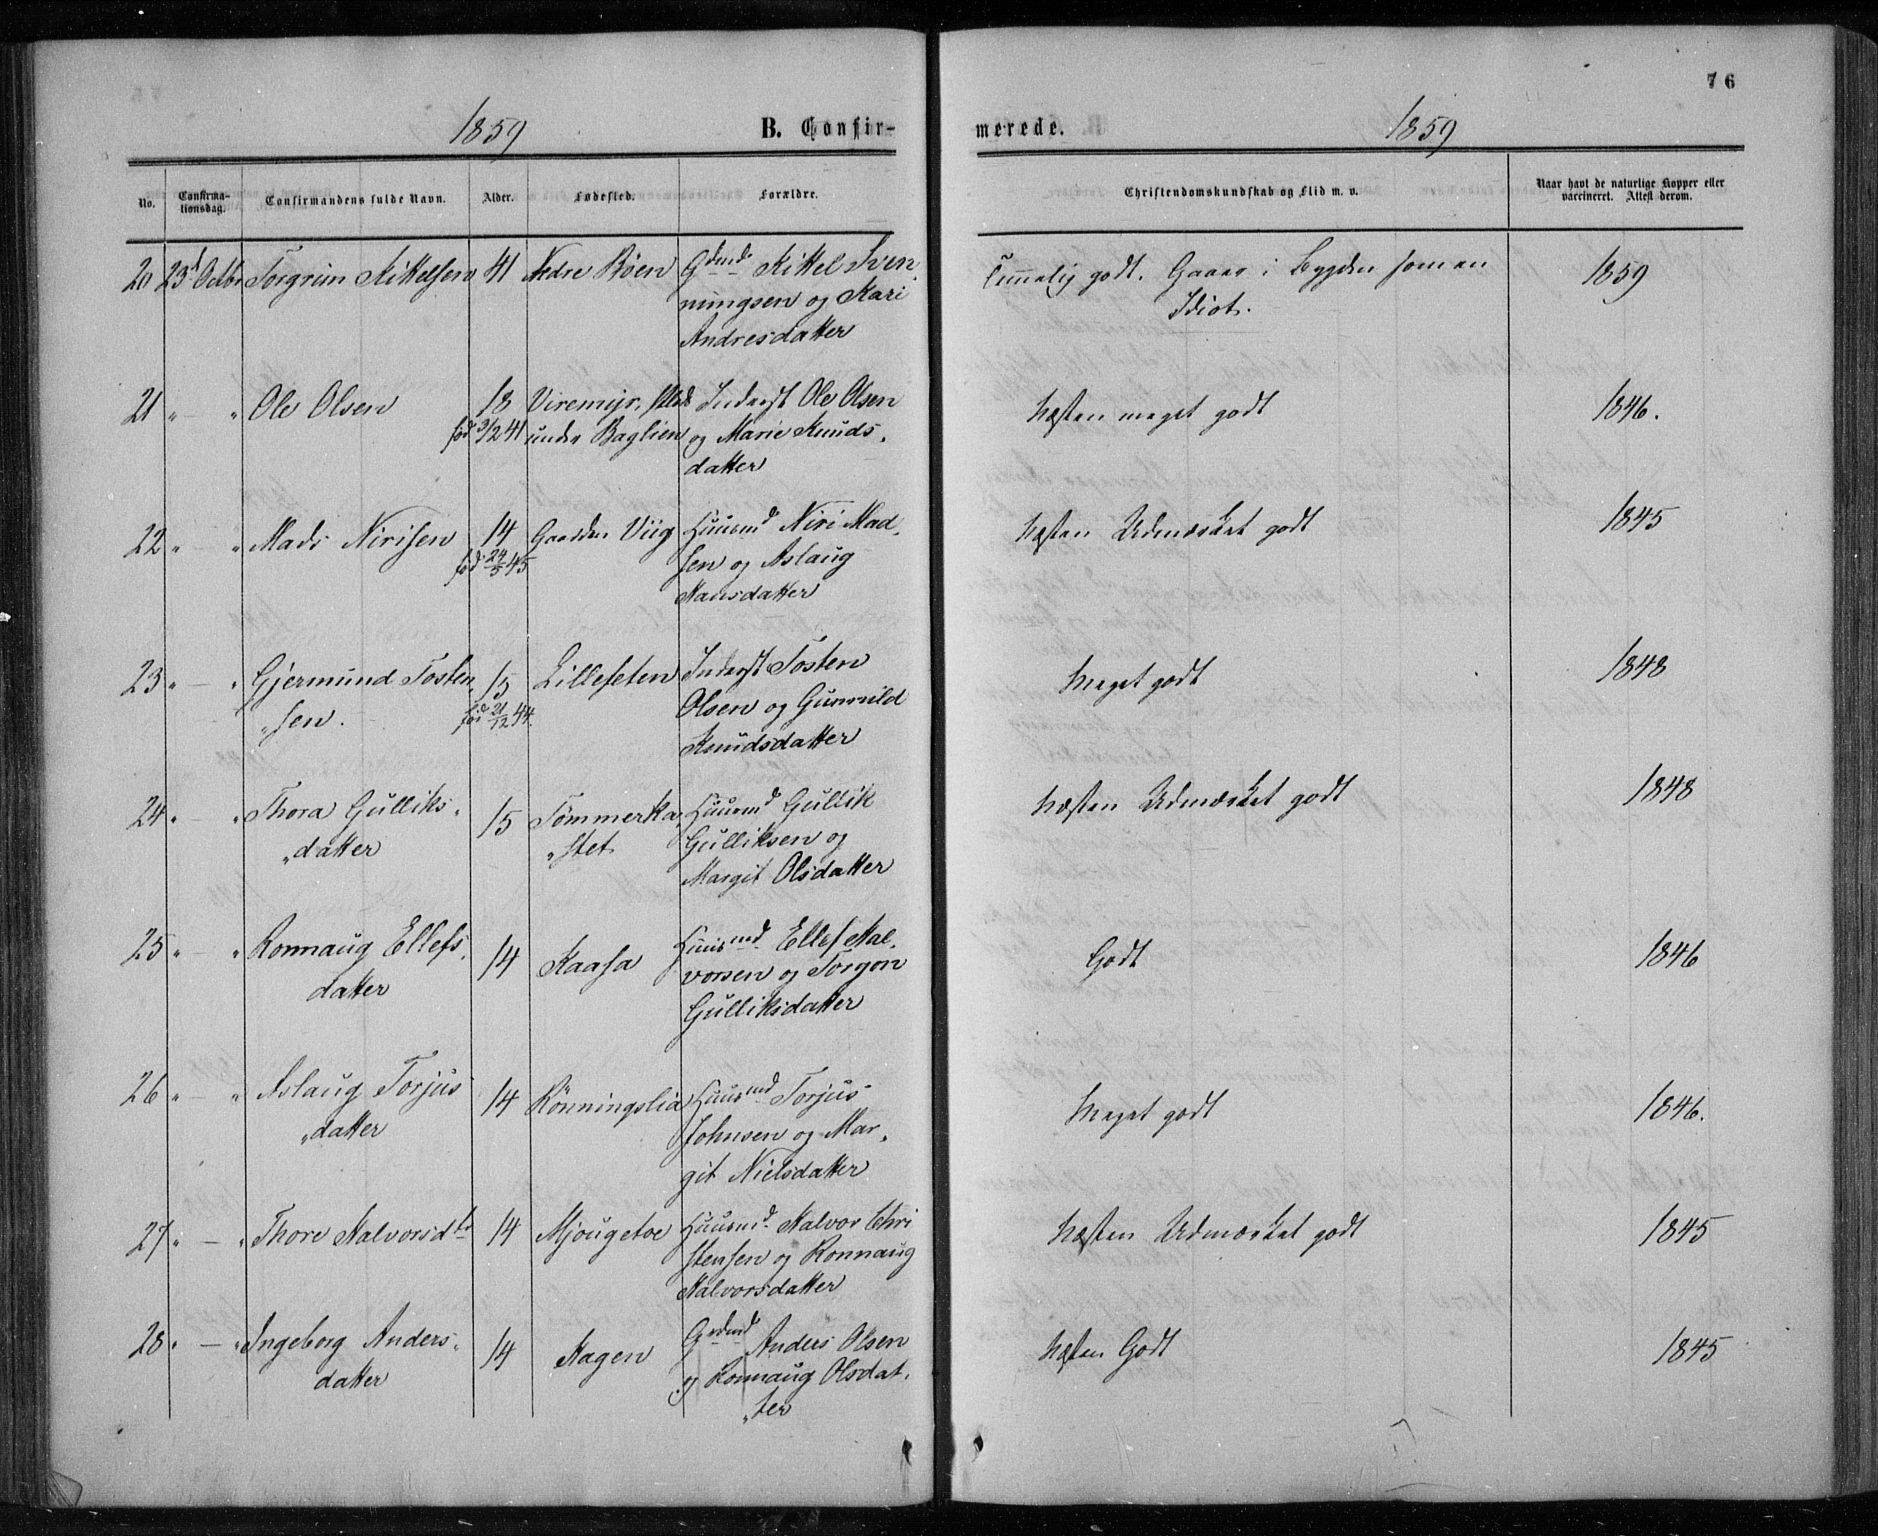 76
1859
B. Confir-
merede.
1859
No.
Confirma-
tionsdag.
Confirmandens fulde Navn.
Alder.
Fødested.
Forældre.
Christendomskundskab og Flid m. v.
Naar havt de naturlige Kopper eller
vaccineret. Attest derom.
20 23d Octbr Torgrim Kittelsen 41 Nedre Böen Kittel Sven
ningsen og Kari
Andresdatter
Temmelig godt. Gaaer i Bygden som en
Idiot.
1859
21 " " Ole Olsen 18 Viremyr, Inderst Ole Olsen
fød 3/2 41 under Baglien og Marie Knuds,
datter
Næsten meget godt
1846.
22 " — " Mads Nirisen 14 Viig Huusmd Niri Mad,
fød 24/5 45 sen og Aslaug
Hansdatter
Næsten Udmærket godt
1845
23 " — " Gjermund Tosten 15 Lilleseten Inderst Tosten
"sen. fød 21/12 44. Olsen og Gunnild
Knudsdatter
Meget godt
1848
24 " — " Thora Gulliks, 15 Tömmerka, Huusmd Gullik
"datter "stet Gulliksen og
Margit Olsdatter
Næsten Udmærket godt
1848
25 " — " Ronnaug Ellefs, 14 Kaasa Huusmd Ellef Hal,
datter vorsen og Torgon
Gulliksdatter
Godt
1846
26 " — " Aslaug Torjus 14 Rönningslia Huusmd Torjus
"datter Johnsen og Mar,
git Nielsdatter
Meget godt
1846.
27 " — " Thore Halvorsdtr 14 Mjougetoe Huusmd Halvor Chri
stensen og Ronnaug
Halvorsdatter
Næsten Udmærket godt
1845
28 " — " Ingeborg Anders, 14 Hagen Anders Olsen
datter og Ronnaug Olsdat,
"ter
Næsten Godt
1845